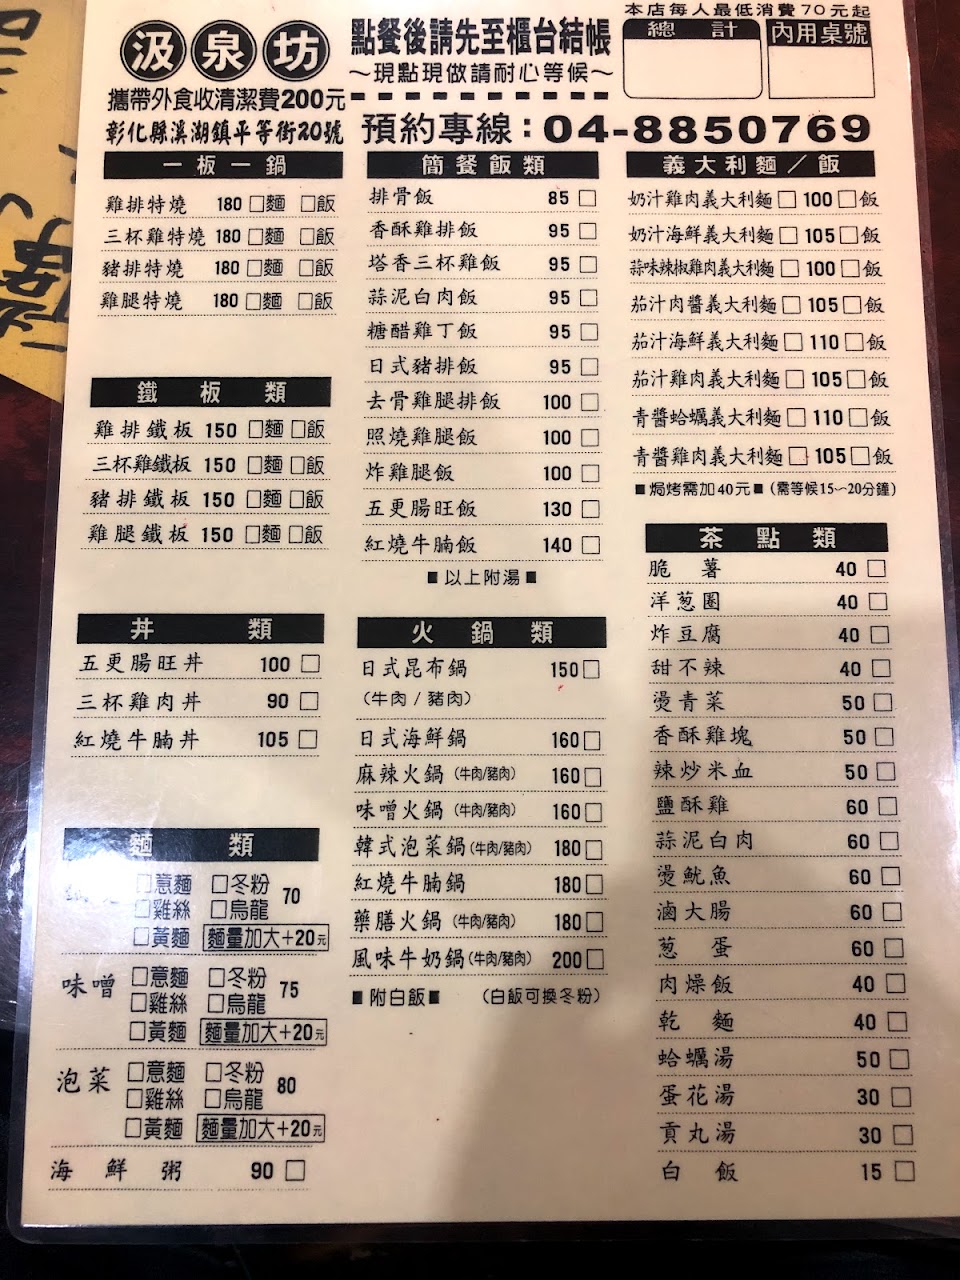 汲泉坊
攜帶外食收清潔費200元
彰化縣溪湖鎮平等街20號
點餐後請先至櫃台結帳
～現點現做請耐心等候～
預約專線：04-8850769
本店每人最低消費70元起
總計
內用桌號
一板一鍋
雞排特燒 180 □麵 □飯
三杯雞特燒 180 □麵 □飯
豬排特燒 180 □麵 □飯
雞腿特燒 180 □麵 □飯
鐵板類
雞排鐵板 150 □麵 □飯
三杯雞鐵板 150 □麵 □飯
豬排鐵板 150 □麵 □飯
雞腿鐵板 150 □麵 □飯
丼類
五更腸旺丼 100 □
三杯雞肉丼 90 □
紅燒牛腩丼 105 □
麵類
□意麵 □冬粉 70
□雞絲 □烏龍
□黃麵 麵量加大+20元
味噌 □意麵 □冬粉 75
□雞絲 □烏龍
□黃麵 麵量加大+20元
泡菜 □意麵 □冬粉 80
□雞絲 □烏龍
□黃麵 麵量加大+20元
海鮮粥 90 □
簡餐飯類
排骨飯 85 □
香酥雞排飯 95 □
塔香三杯雞飯 95 □
蒜泥白肉飯 95 □
糖醋雞丁飯 95 □
日式豬排飯 95 □
去骨雞腿排飯 100 □
照燒雞腿飯 100 □
炸雞腿飯 100 □
五更腸旺飯 130 □
紅燒牛腩飯 140 □
■以上附湯■
火鍋類
日式昆布鍋 150 □
（牛肉/豬肉）
日式海鮮鍋 160 □
麻辣火鍋（牛肉/豬肉） 160 □
味噌火鍋（牛肉/豬肉） 160 □
韓式泡菜鍋（牛肉/豬肉） 180 □
紅燒牛腩鍋 180 □
藥膳火鍋（牛肉/豬肉） 180 □
風味牛奶鍋（牛肉/豬肉） 200 □
■附白飯■ （白飯可換冬粉）
義大利麵／飯
奶汁雞肉義大利麵 □ 100 □飯
奶汁海鮮義大利麵 □ 105 □飯
蒜味辣椒雞肉義大利麵 □ 100 □飯
茄汁肉醬義大利麵 □ 105 □飯
茄汁海鮮義大利麵 □ 110 □飯
茄汁雞肉義大利麵 □ 105 □飯
青醬蛤蠣義大利麵 □ 110 □飯
青醬雞肉義大利麵 □ 105 □飯
■焗烤需加40元■（需等候15～20分鐘）
茶點類
脆薯 40 □
洋蔥圈 40 □
炸豆腐 40 □
甜不辣 40 □
燙青菜 50 □
香酥雞塊 50 □
辣炒米血 50 □
鹽酥雞 60 □
蒜泥白肉 60 □
燙魷魚 60 □
滷大腸 60 □
蔥蛋 60 □
肉燥飯 40 □
乾麵 40 □
蛤蠣湯 50 □
蛋花湯 30 □
貢丸湯 30 □
白飯 15 □